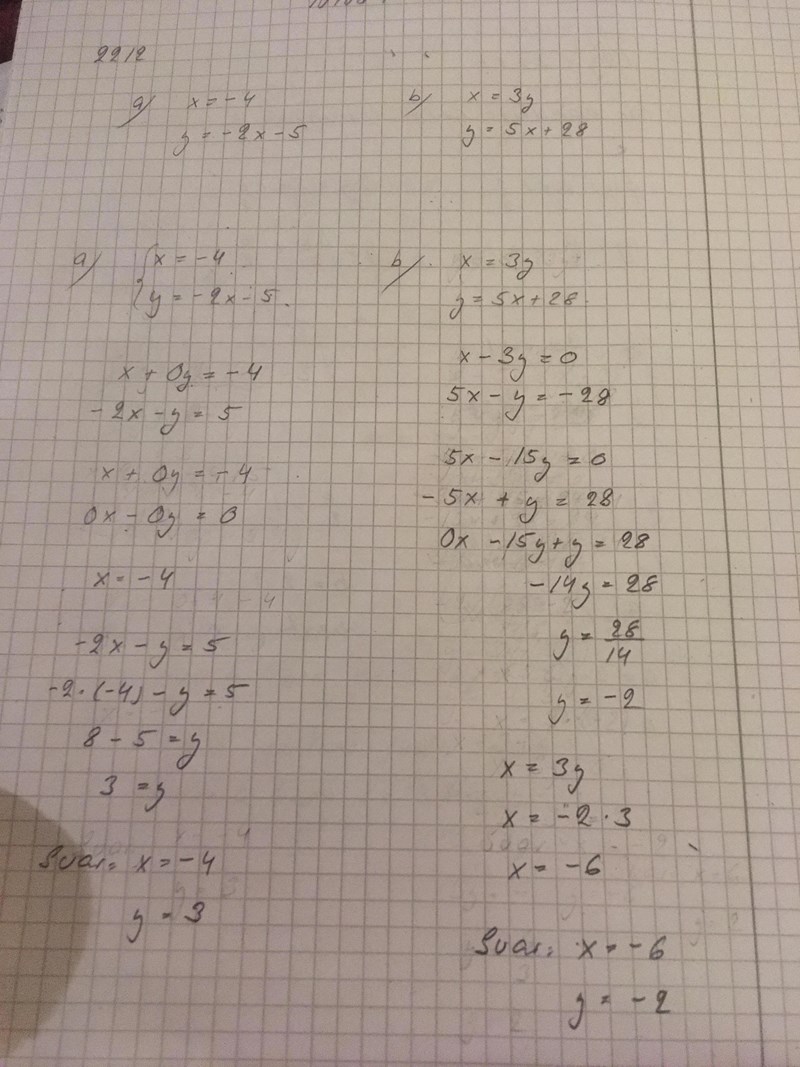 2212
a) x = -4
y = -2x - 5
b) x = 3y
y = 5x + 28
a) { x = -4
y = -2x - 5.
x + 0y = -4
-2x - y = 5
x + 0y = -4
0x - 0y = 0
x = -4
-2x - y = 5
-2 · (-4) - y = 5
8 - 5 = y
3 = y
Svar: x = -4
y = 3
b) x = 3y
y = 5x + 28
x - 3y = 0
5x - y = -28
5x - 15y = 0
-5x + y = 28
0x - 15y + y = 28
-14y = 28
y = 28/14
y = -2
x = 3y
x = -2 · 3
x = -6
Svar: x = -6
y = -2